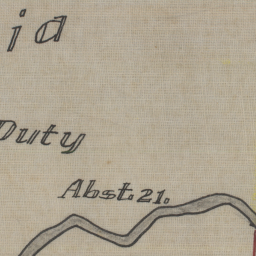 id
Duty
Abst. 21.